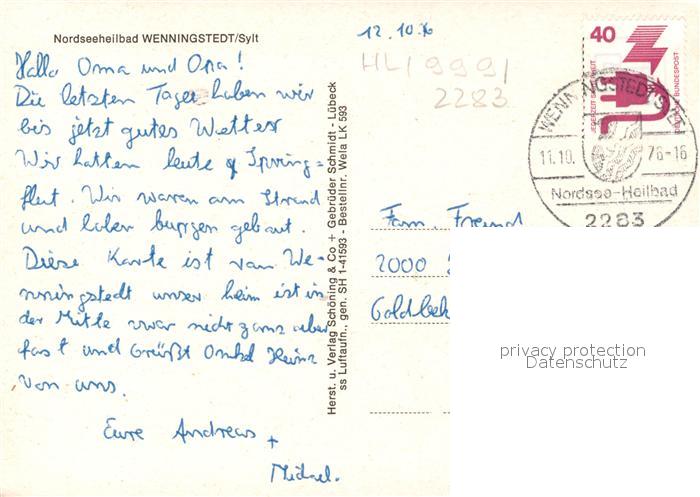 Nordseeheilbad WENNINGSTEDT/Sylt
Hallo Oma und Opa!
Die letzten Tage haben wir
bis jetzt gutes Wetter
Wir hatten heute Spring=
flut. Wir waren am Strand
und haben burgen gebaut.
Diese Karte ist van We-
nningstedt unser heim ist in
der Mitte zwar nicht ganz aber
fast und Grüßt Onkel Heinz
von uns.
Eure Andreas +
Michael.
Herst. u. Verlag Schöning & Co + Gebrüder Schmidt - Lübeck
ss Luftaufn., gen. SH 1-41593 - Bestellnr. Wela LK 593
12.10.76
HL/999/
2283
40
JEDERZEIT SICHERHEIT
DEUTSCHE BUNDESPOST
WENNINGSTEDT/SYLT
11.10. 76-16
Nordsee-Heilbad
2283
Fam. Freund
2000
Goldbek
privacy protection
Datenschutz